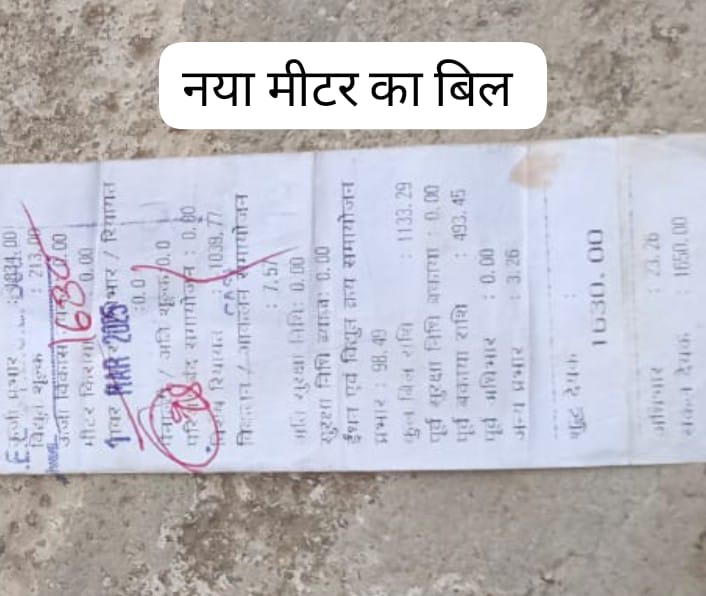 नया मीटर का बिल
ऊर्जा प्रभार :
विद्युत शुल्क : 213.00
ऊर्जा विकास 0.00
1630
मीटर किराया 0.00
भार / रियायत
MAR 2025
: 0.0
/ अति शुल्क 0.0
समायोजन : 0.00
98
रियायत : 1039.77
CASH
विकलन / आकलन समायोजन
: 7.57
अति सुरक्षा निधि: 0.00
सुरक्षा निधि ब्याज: 0.00
ईंधन एवं विद्युत क्रय समायोजन
प्रभार : 98.49
कुल बिल राशि : 1133.29
पूर्व सुरक्षा निधि बकाया : 0.00
पूर्व बकाया राशि : 493.45
पूर्व अधिभार : 0.00
अन्य प्रभार : 3.26
शुद्ध देयक :
1630.00
अधिभार : 23.26
सकल देयक : 1650.00